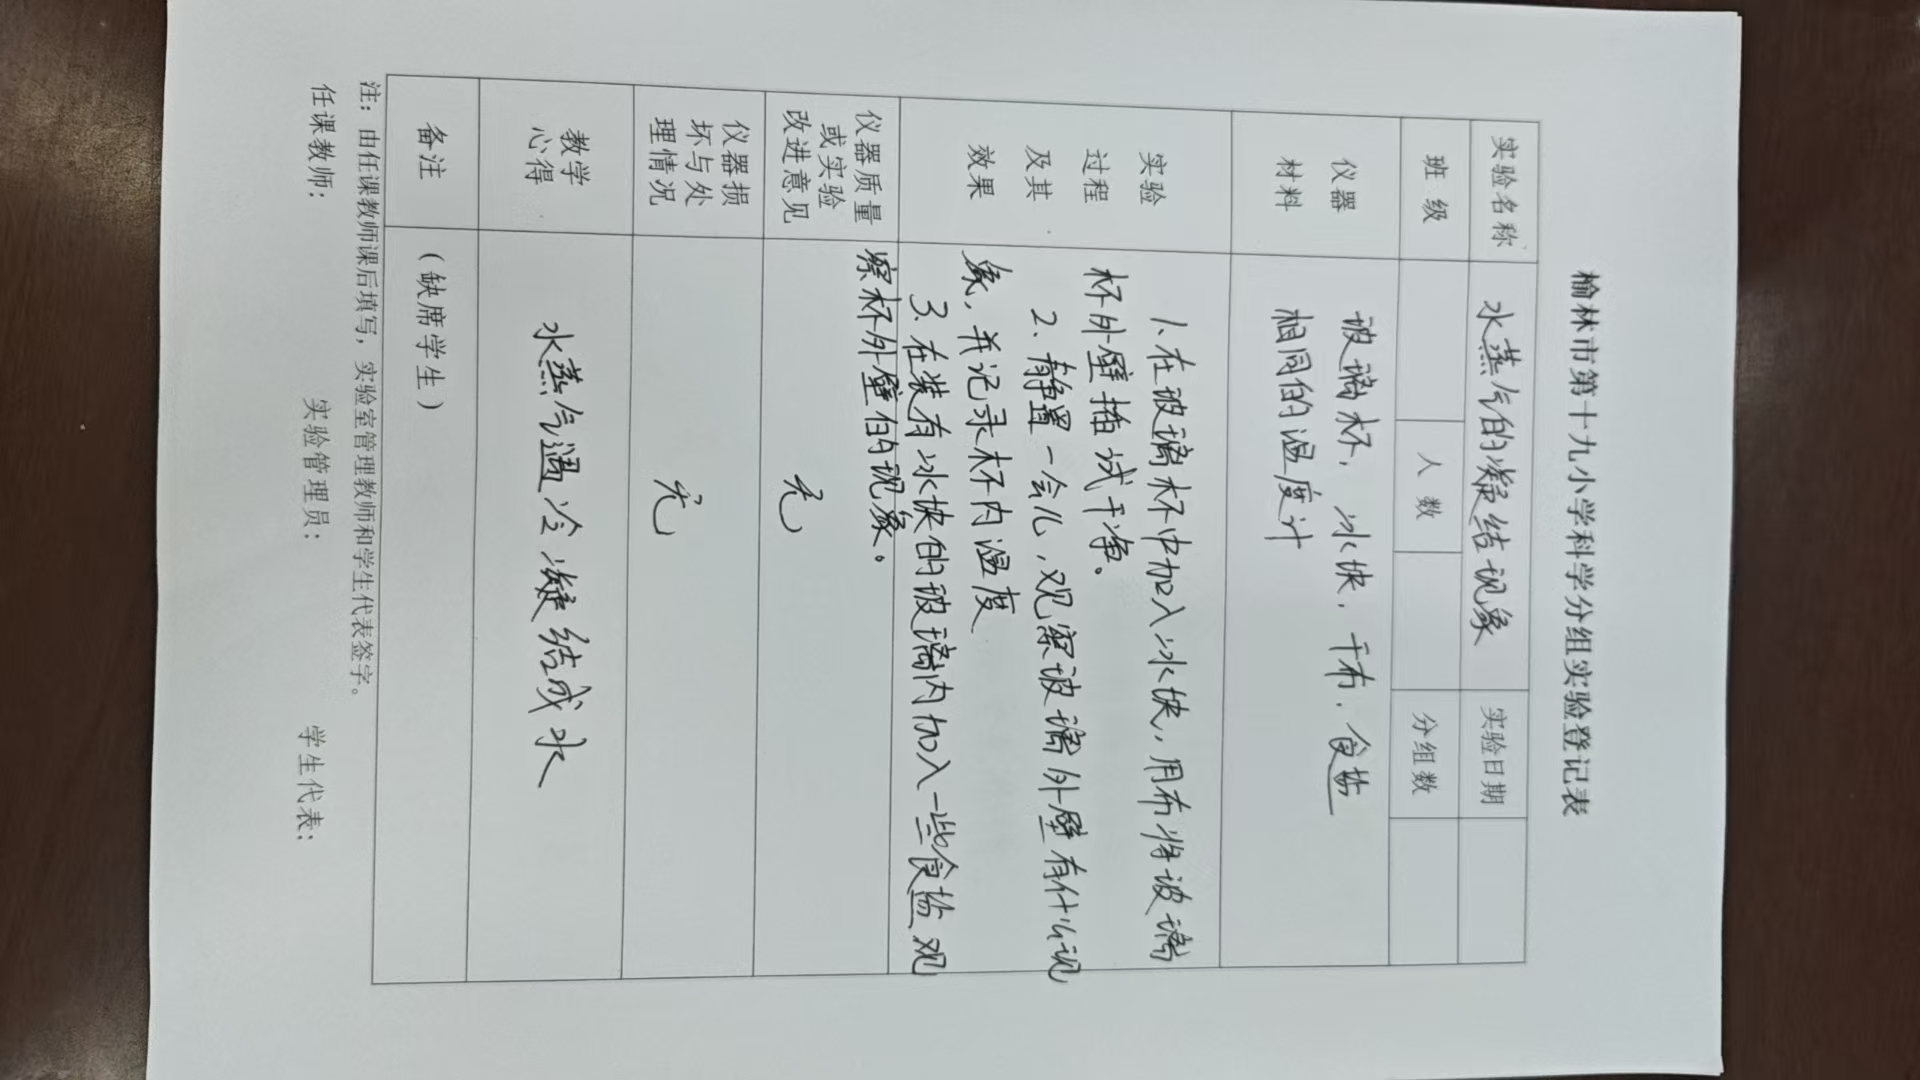 榆林市第十九小学科学分组实验登记表
实验名称 水蒸气的凝结现象 实验日期
班级 人数 分组数
仪器
材料
玻璃杯，冰块，干布，食盐
相同的温度计
实验
过程
及其
效果
1.在玻璃杯中加入冰块，用布将玻璃
杯外壁擦试干净。
2.静置一会儿，观察玻璃外壁有什么现
象，并记录杯内温度
3.在装有冰块的玻璃内加入一些食盐观
察杯外壁的现象。
仪器质量
或实验
改进意见
无
仪器损
坏与处
理情况
无
教学
心得
水蒸气遇冷凝结成水
备注 （缺席学生）
注：由任课教师课后填写，实验室管理教师和学生代表签字。
任课教师： 实验管理员： 学生代表：